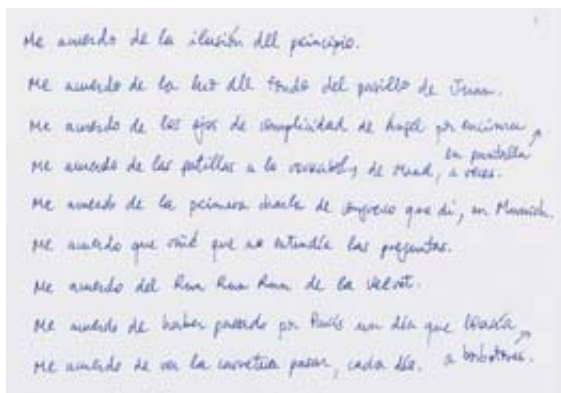 Me acuerdo de la ilusión del principio.
Me acuerdo de la luz del fondo del pasillo de Juan.
Me acuerdo de los ojos de complicidad de Angel por encima
en pantalla
Me acuerdo de las patillas a lo de, a veces.
Me acuerdo de la primera charla de congreso que di, en Munich.
Me acuerdo que soñé que no entendía las preguntas.
Me acuerdo del Run Run Run de la Velvet.
Me acuerdo de haber pasado por París un día que llovía
Me acuerdo de ver la carretera pasar, cada día. a borbotones.